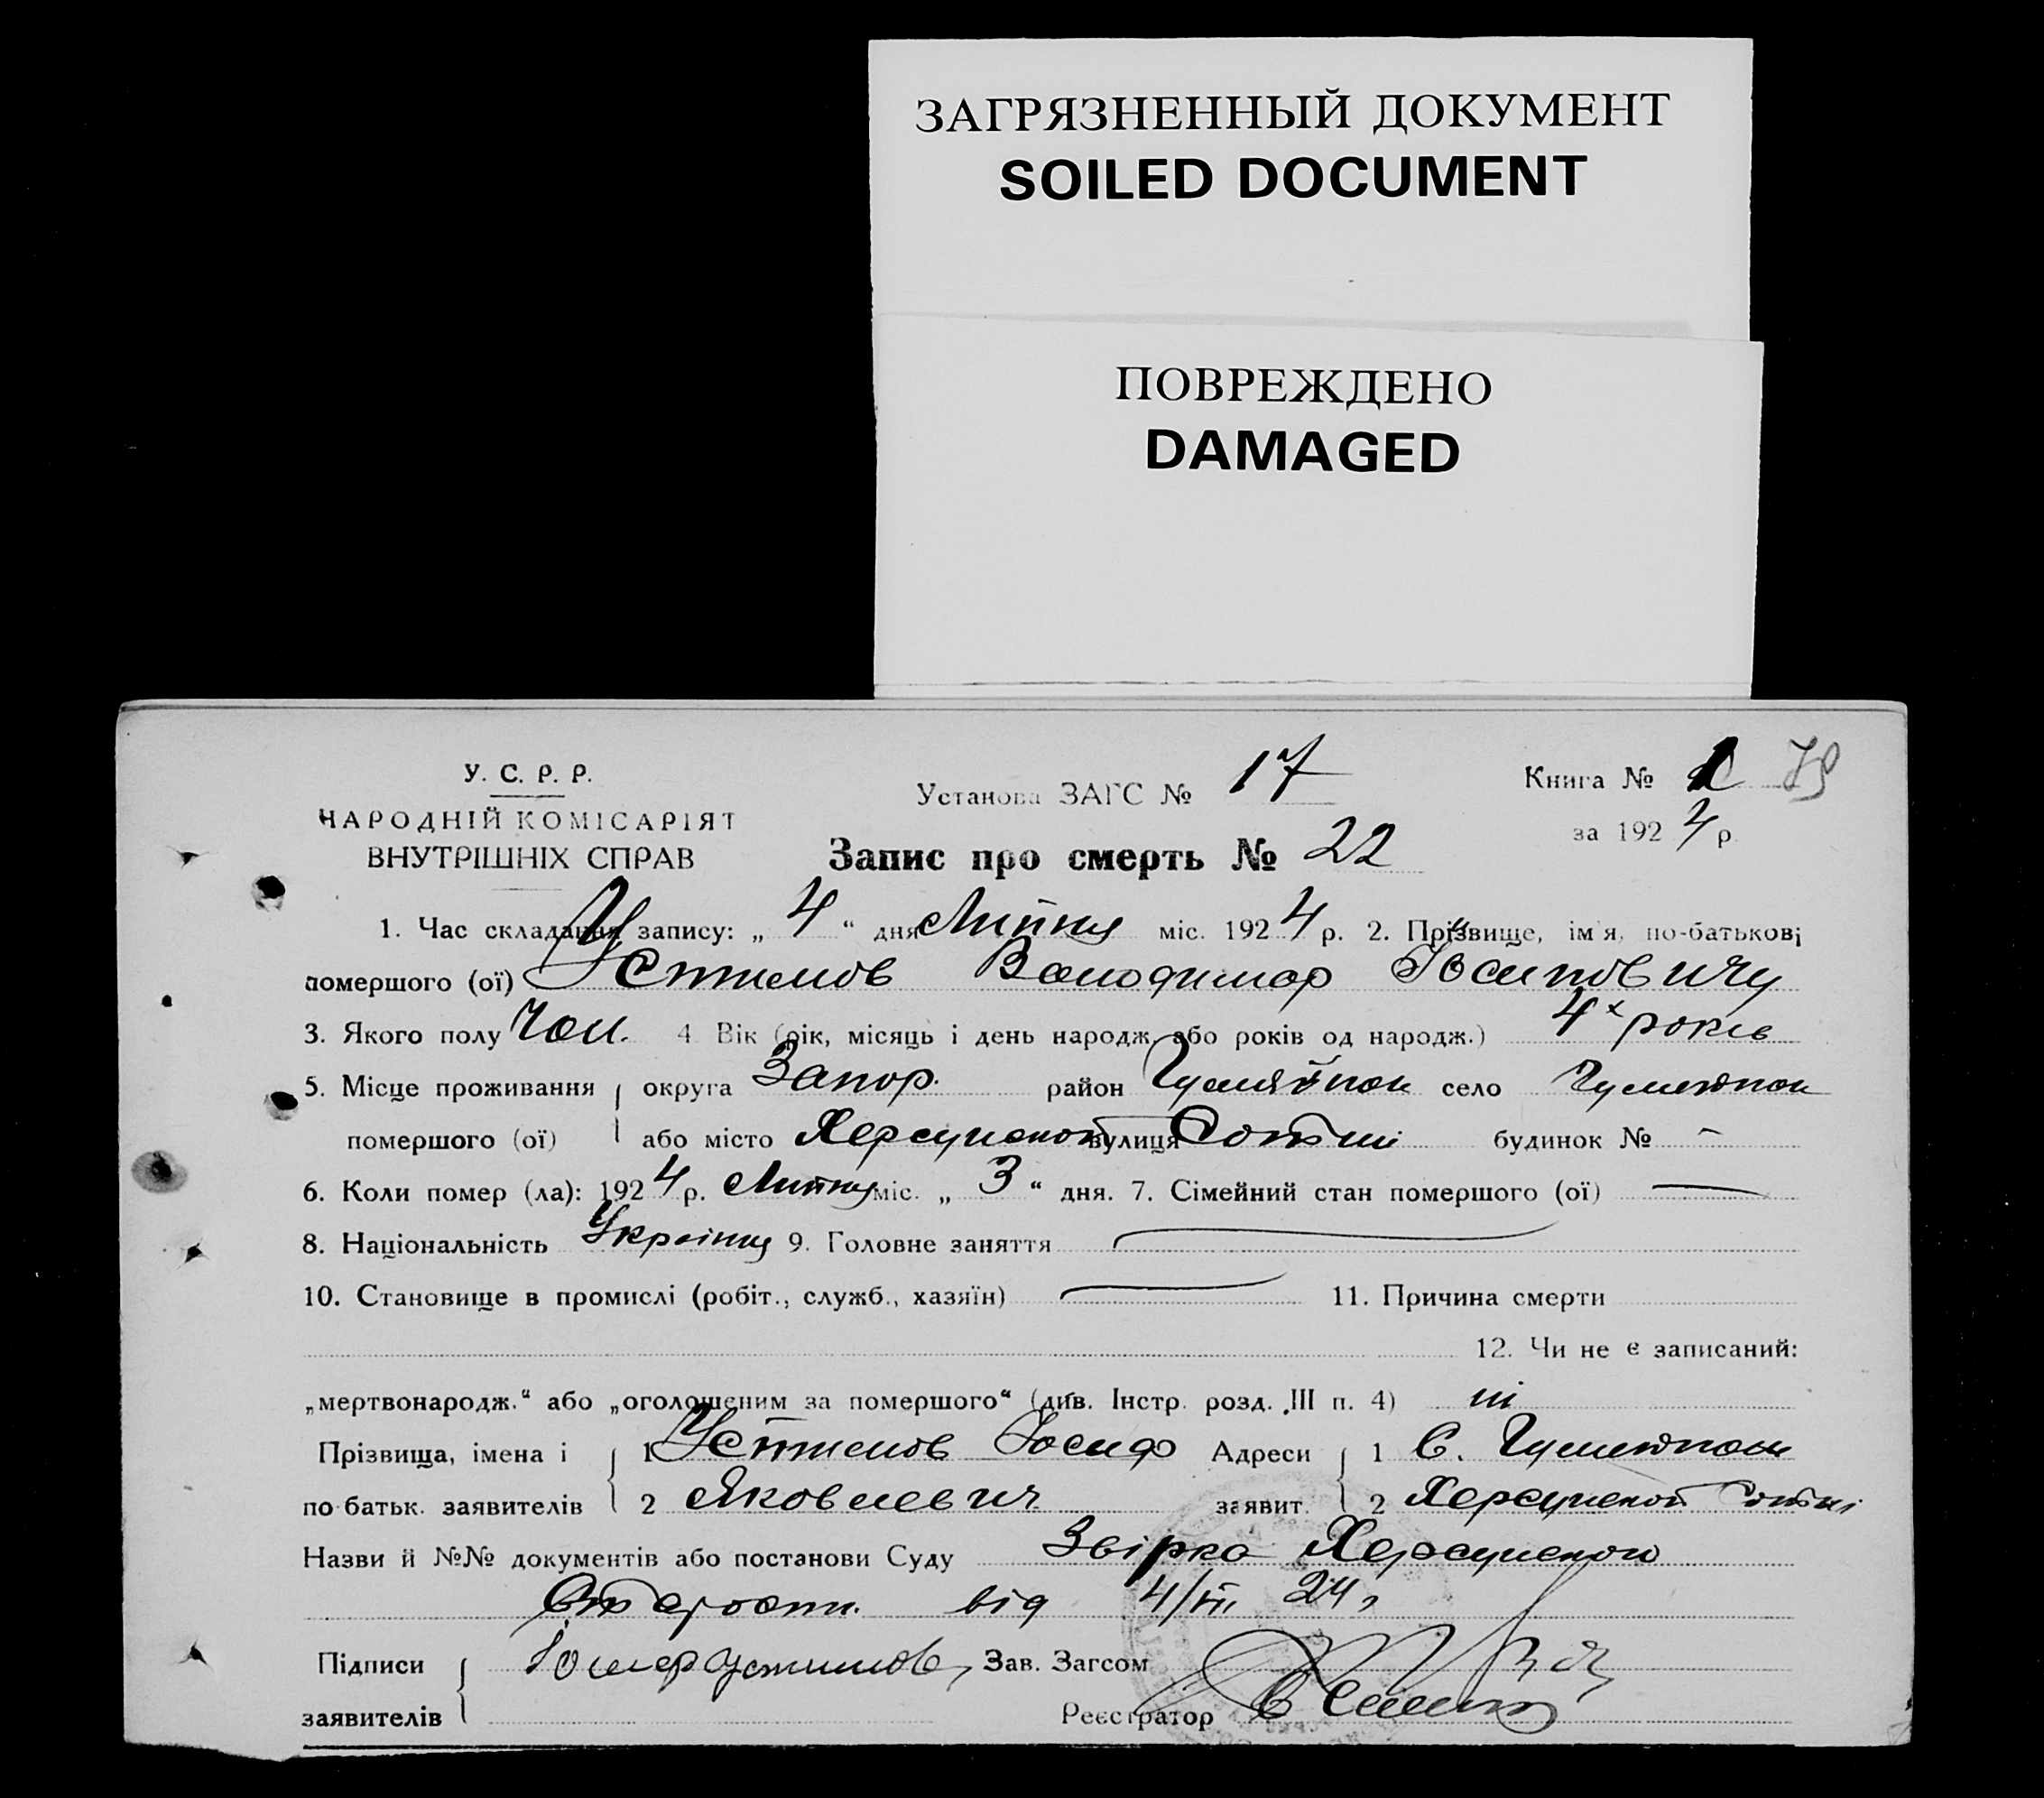 ЗАГРЯЗНЕННЫЙ ДОКУМЕНТ
SOILED DOCUMENT
ПОВРЕЖДЕНО
DAMAGED
У. С. Р. Р.
НАРОДНІЙ КОМІСАРІЯТ
ВНУТРІШНІХ СПРАВ
Установа ЗАГС № 17
Книга № 1 79
за 1924 р.
Запис про смерть № 22
1. Час складання запису: „ 4 “ дня Липня міс. 1924 р. 2. Прізвище, ім'я, по-батькові
помершого (ої) Устимов Володимир Йосипович
3. Якого полу Чол. 4 Вік (рік, місяць і день народж. або років од народж.) 4х років
5. Місце проживання округа Запор. район Гуляйпол село Гуляйпол
помершого (ої) або місто Херсунської вулиця Сотні будинок № -
6. Коли помер (ла): 1924 р. Липня міс. „ 3 “ дня. 7. Сімейний стан помершого (ої) —
8. Національність Українц 9. Головне заняття —
10. Становище в промислі (робіт., служб., хазяїн) — 11. Причина смерти
12. Чи не є записаний:
„мертвонародж.“ або „оголошеним за помершого“ (див. Інстр. розд. III п. 4) ні
Прізвища, імена і 1 Устимов Йосиф Адреси 1 С. Гуляйпол
по-батьк. заявителів 2 Яковлевич заявит. 2 Херсунської Сотні
Назви й №№ документів або постанови Суду Звірка Херсунского
від 4/VII 24 р
Підписи Устимов Зав. Загсом
заявителів Реєстратор